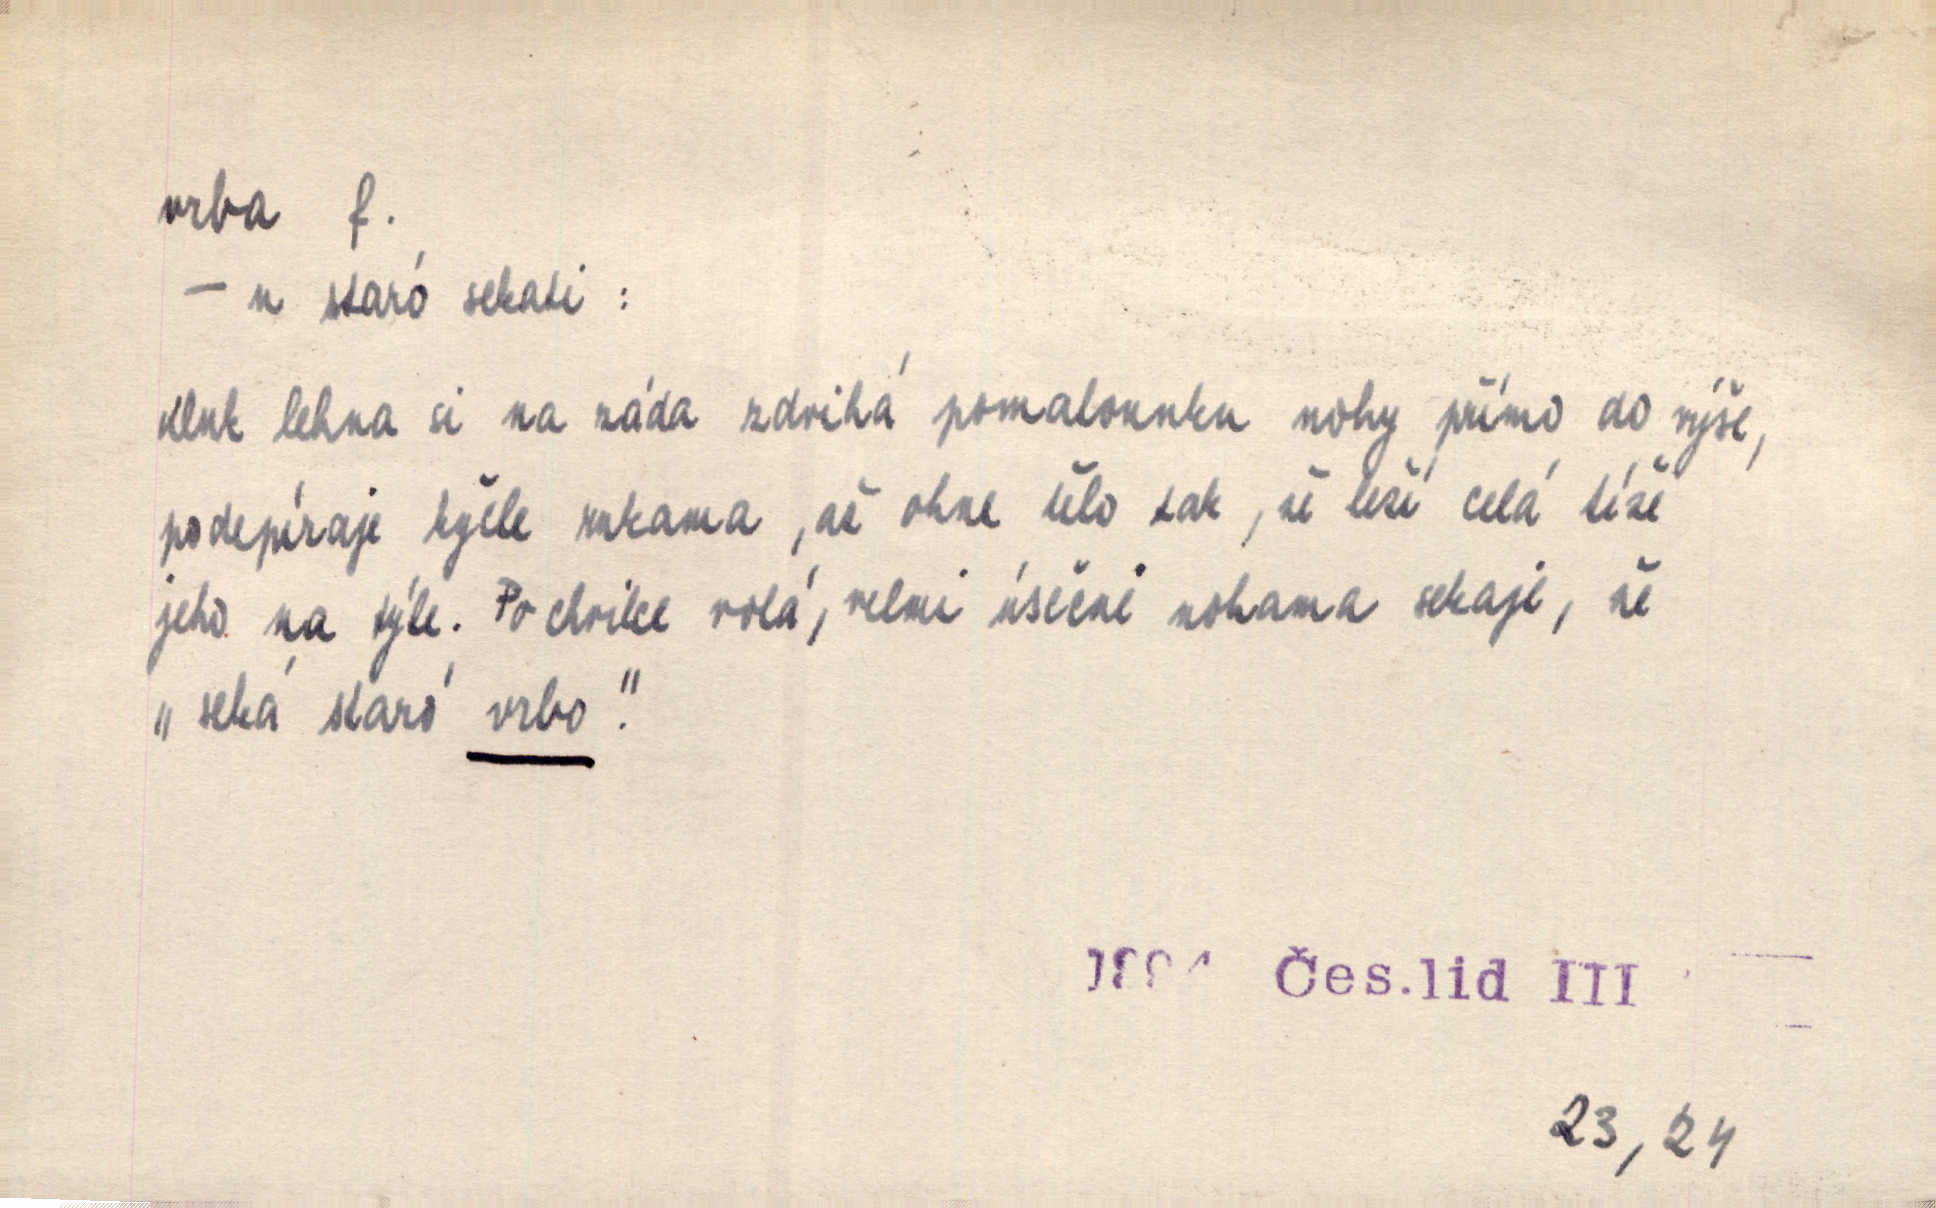 vrba f.
– u staró sekati :
Kluk lehna si na záda zdvihá pomalounku nohy přímo do výše,
podepíraje kyčle rukama, až ohne tělo tak, že leží celá tíže
jeho na týle. Po chvilce volá, velmi úsečně nohama sekaje, že
„seká staró vrbo."
Čes.lid III
23, 24